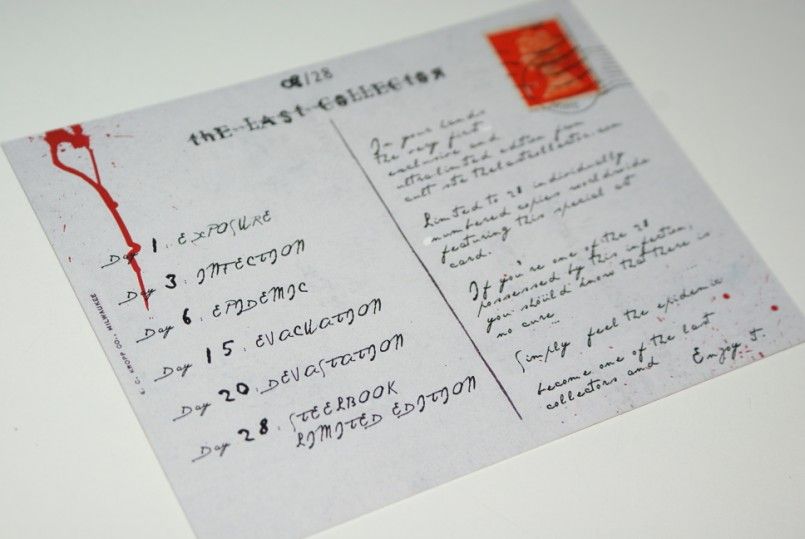 08/28
the LAst CoLLECtoR
Day 1. EXPOSURE
Day 3. INFECTION
Day 6. EPIDEMIC
Day 15. EVACUATION
Day 20. DEVASTATION
Day 28. STEELBOOK
LIMITED EDITION
E. C. KROPP CO., MILWAUKEE
In your hands
the very first
exclusive and
ultralimited edition from
cult site thelastcollector.com
Limited to 28 individually
numbered copies worldwide
featuring this special art
card.
If you're one of the 28
possessed by this infection,
you should know that there is
no cure...
Simply feel the epidemic
become one of the last
collectors and Enjoy it.